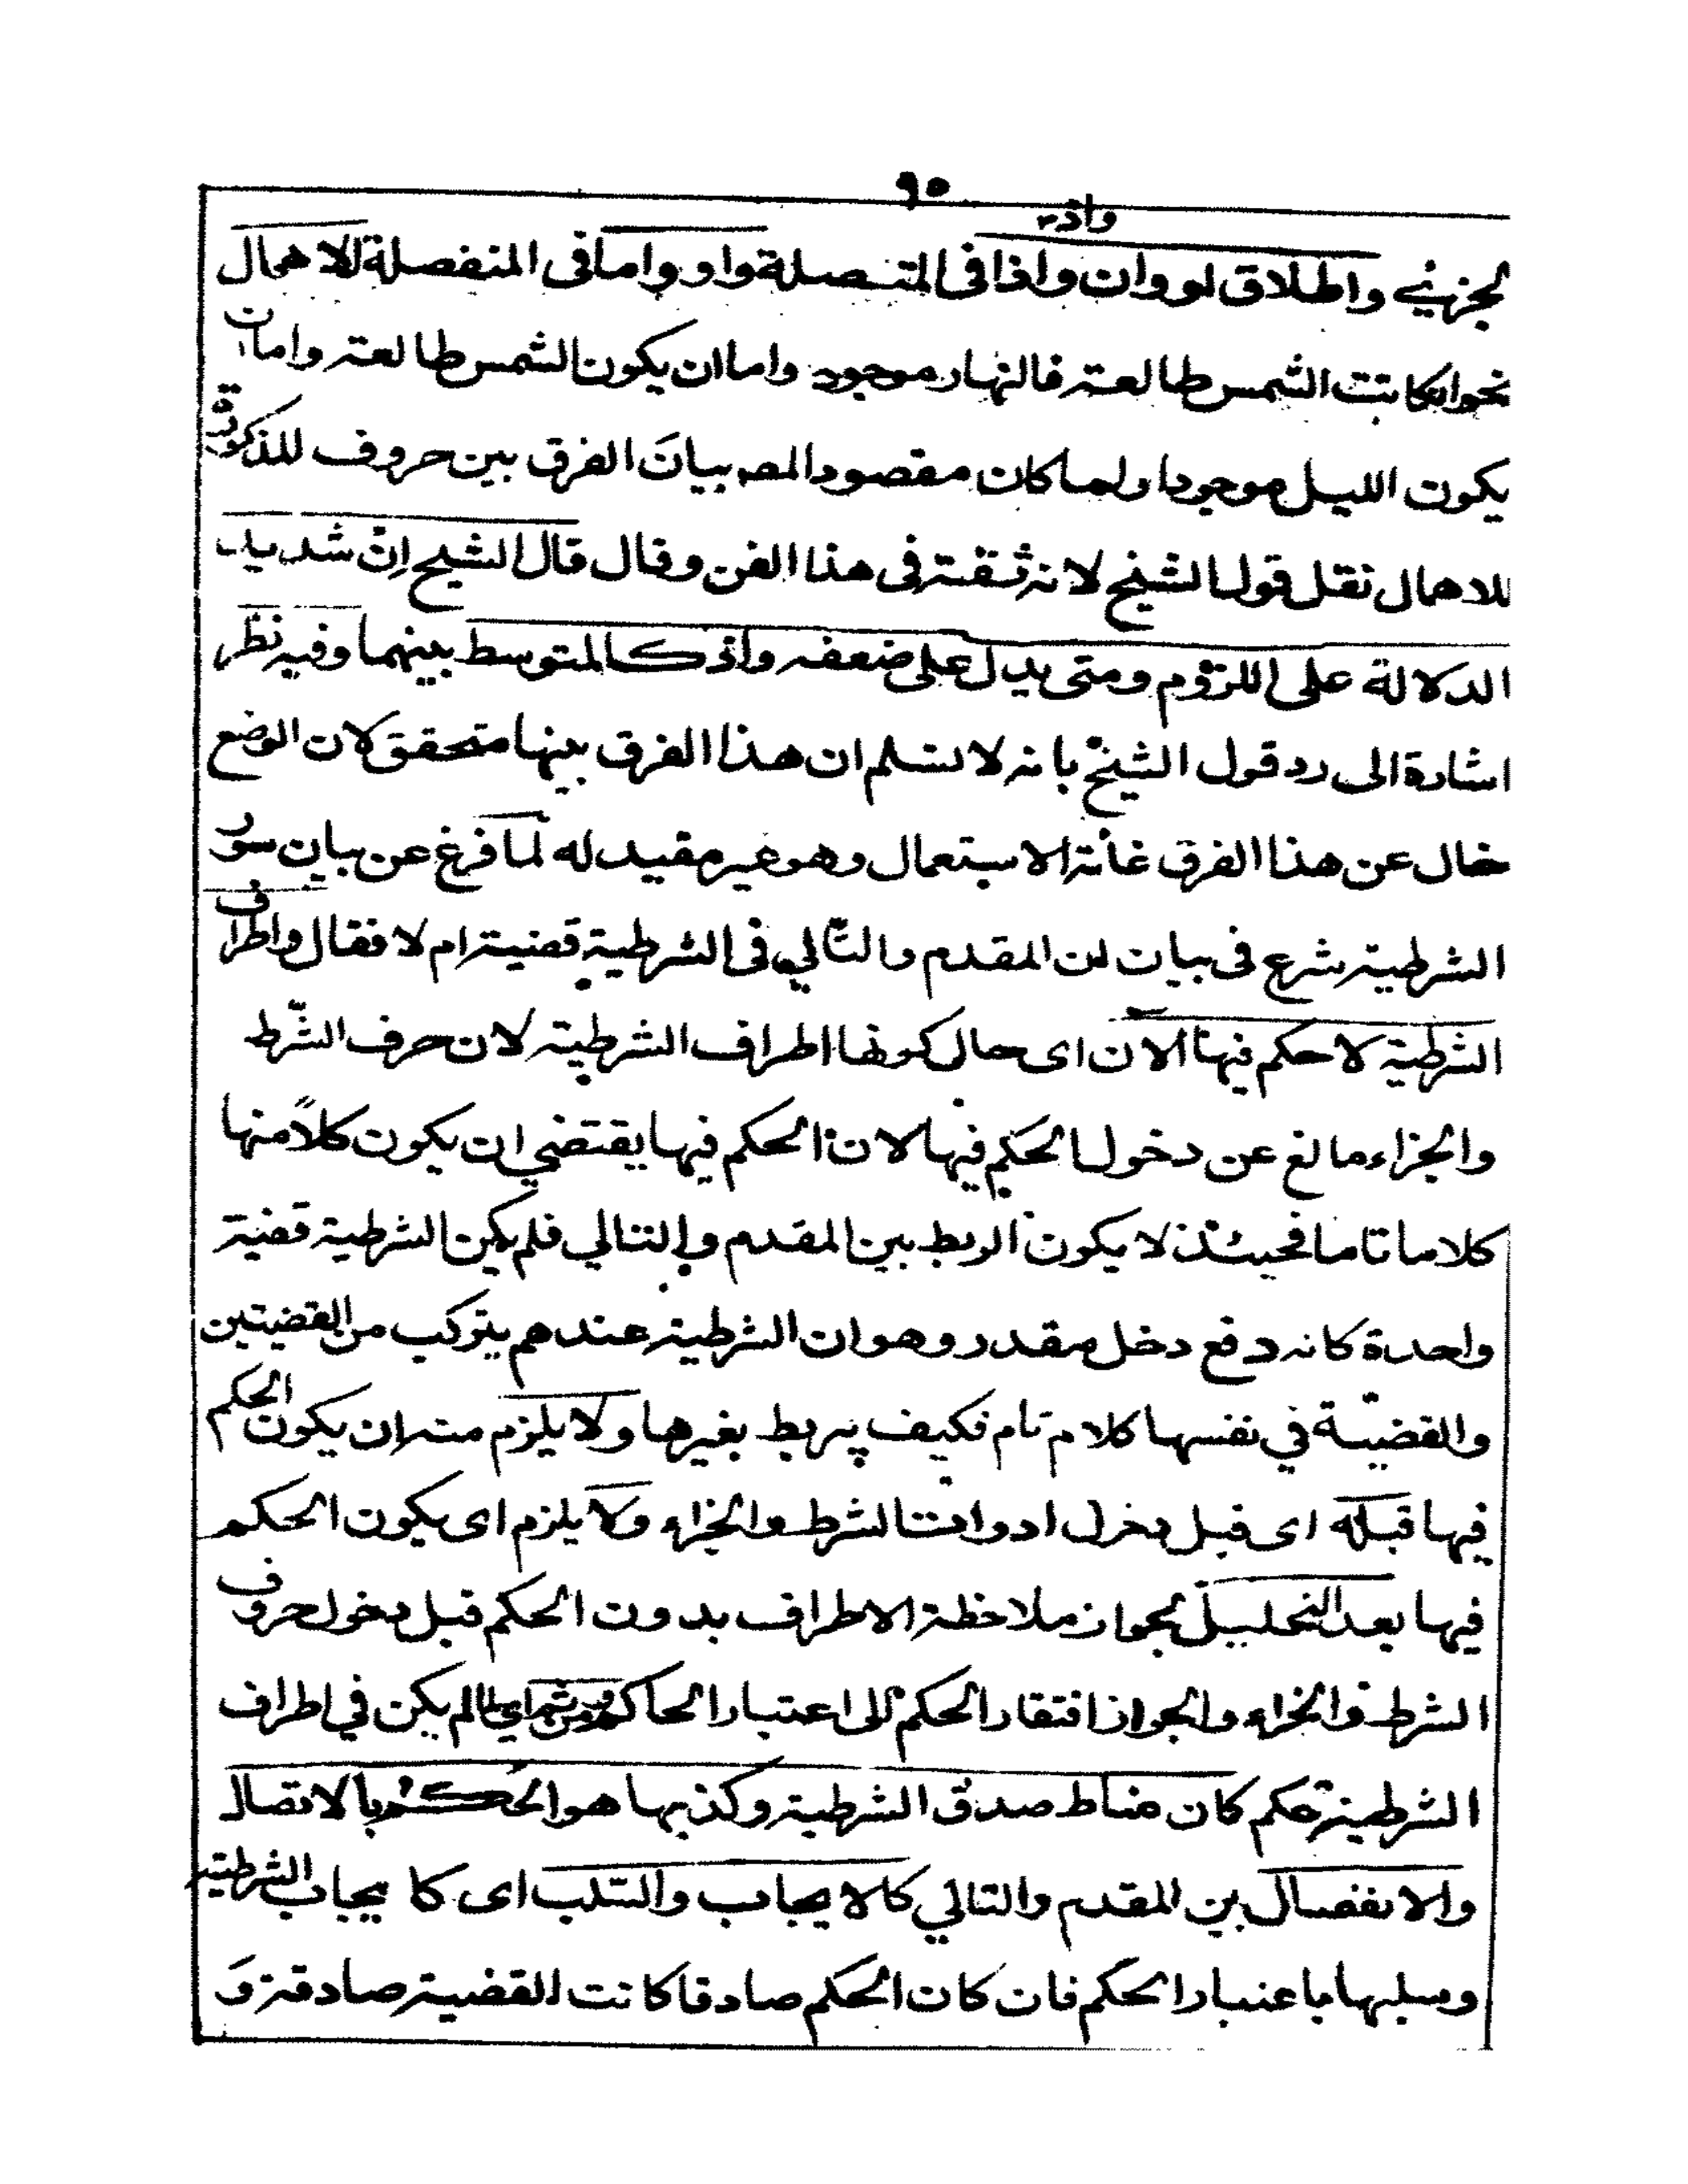 ٩٥
واذ
الجزئي واطلاق لو وان واذا فى المتصلة واو واما فى المنفصلة للاهمال
نحو ان كانت الشمس طالعة فالنهار موجود واما ان يكون الشمس طالعة واما ان
يكون الليل موجودا ولما كان مقصود المصـ بيان الفرق بين حروف المذكورة
للاهمال نقل قول الشيخ لانه ثقة فى هذا الفن وقال قال الشيخ ان شديد
الدلالة على اللزوم ومتى يدل على ضعفه واذ كالمتوسط بينهما وفيه نظر
اشارة الى رد قول الشيخ بانه لا نسلم ان هذا الفرق بينها متحقق لان الوضع
خال عن هذا الفرق غاية الاستعمال وهو غير مقيد له لما فرغ عن بيان سور
الشرطية شرع فى بيان ان المقدم والتالي فى الشرطية قضية ام لا فقال واطراف
الشرطية لا حكم فيها الآن اى حال كونها اطراف الشرطية لان حرف الشرط
والجزاء مانع عن دخول الحكم فيها لان الحكم فيها يقتضي ان يكون كلا منها
كلاما تاما فحينئذ لا يكون الربط بين المقدم والتالي فلم يكن الشرطية قضية
واحدة كانه دفع دخل مقدر وهو ان الشرطية عندهم يتركب من القضيتين
والقضية في نفسها كلام تام فكيف يربط بغيرها ولا يلزم منه ان يكون الحكم
فيها قبله اى قبل دخول ادوات الشرط والجزاء ولا يلزم اى يكون الحكم
فيها بعد التحليل لجواز ملاحظة الاطراف بدون الحكم قبل دخول حروف
الشرط والجزاء والجواز افتقار الحكم الى اعتبار الحاكم ومن ثم اى لما لم يكن في اطراف
الشرطية حكم كان مناط صدق الشرطية وكذبها هو الحكم بالاتصال
والانفصال بين المقدم والتالي كالايجاب والسلب اى كا يجاب الشرطية
وسلبها باعتبار الحكم فان كان الحكم صادقا كانت القضية صادقة و